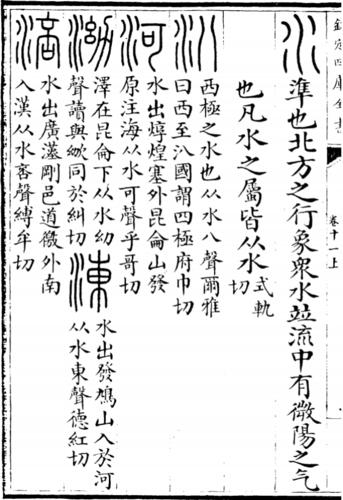 欽定四庫全書
卷十一上
水 準也北方之行象衆水並流中有微陽之气
也凡水之屬皆从水式軌切
汃 西極之水也从水八聲爾雅
曰西至汃國謂四極府巾切
河 水出焞煌塞外昆侖山發
原注海从水可聲乎哥切
泑 澤在昆侖下从水幼
聲讀與䜈同於糾切
涷 水出發鳩山入於河
从水東聲德紅切
涪 水出廣漢剛邑道徼外南
入漢从水咅聲縛牟切